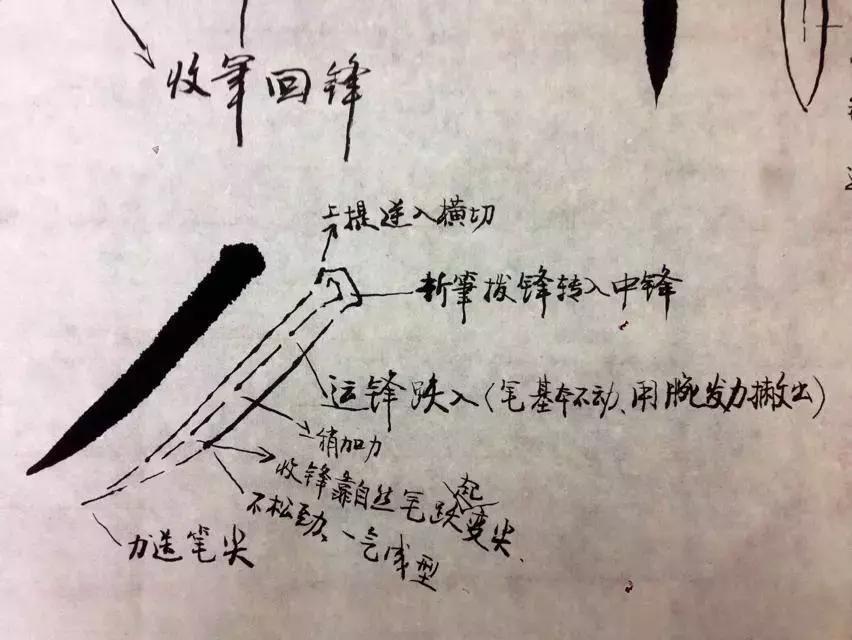 收笔回锋
上提逆入横切
折筆拨锋转入中锋
运锋跌入(笔基本不动、用腕发力撇出)
稍加力
收锋靠自然笔跌起变尖、
不松劲、一气成型
力送笔尖